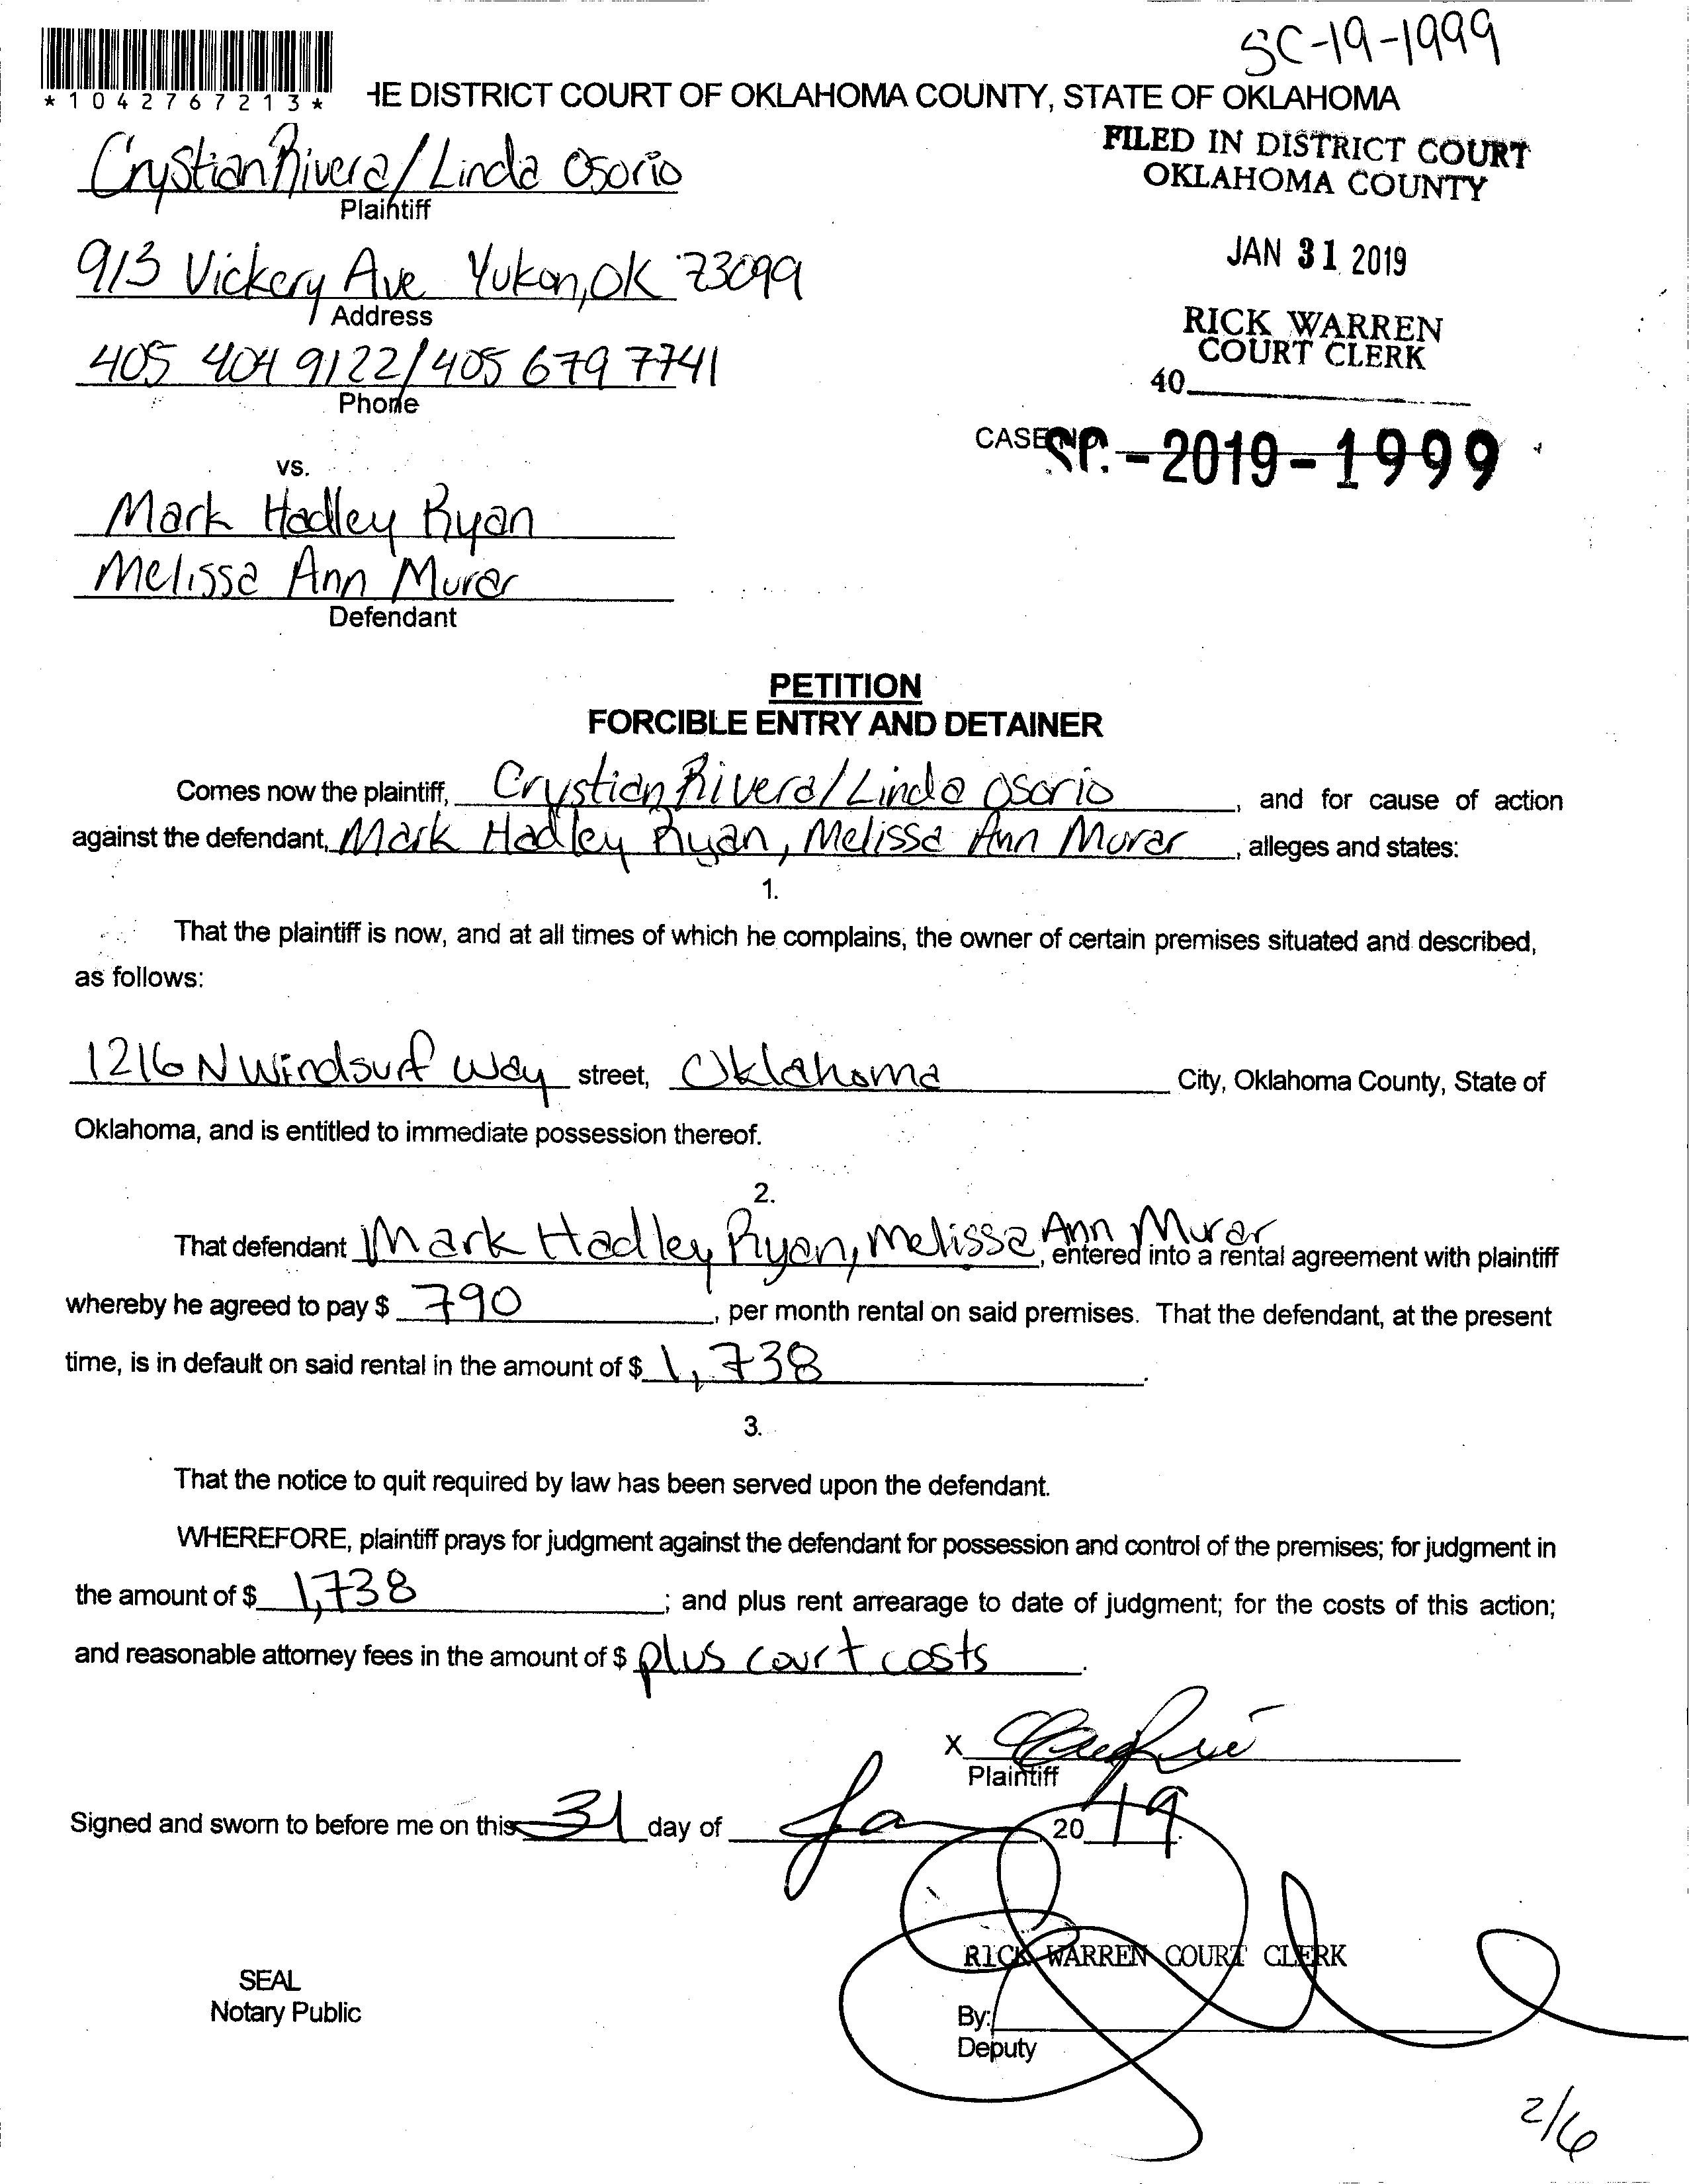 SC-19-1999
*1042767213*
HE DISTRICT COURT OF OKLAHOMA COUNTY, STATE OF OKLAHOMA
Crystian Rivera/Linda Osorio
Plaintiff
FILED IN DISTRICT COURT
OKLAHOMA COUNTY
913 Vickery Ave Yukon, OK 73099
Address
JAN 31 2019
405 404 9122/405 679 7741
Phone
RICK WARREN
COURT CLERK
40
CASE NO. SC - 2019 - 1999
vs.
Mark Hadley Ryan
Melissa Ann Murar
Defendant
PETITION
FORCIBLE ENTRY AND DETAINER
Comes now the plaintiff, Crystian Rivera/Linda Osorio, and for cause of action
against the defendant, Mark Hadley Ryan, Melissa Ann Murar, alleges and states:
1.
That the plaintiff is now, and at all times of which he complains, the owner of certain premises situated and described,
as follows:
1216 N Windsurf Way street, Oklahoma City, Oklahoma County, State of
Oklahoma, and is entitled to immediate possession thereof.
2.
That defendant Mark Hadley Ryan, Melissa Ann Murar, entered into a rental agreement with plaintiff
whereby he agreed to pay $ 790, per month rental on said premises. That the defendant, at the present
time, is in default on said rental in the amount of $ 1,738.
3.
That the notice to quit required by law has been served upon the defendant.
WHEREFORE, plaintiff prays for judgment against the defendant for possession and control of the premises; for judgment in
the amount of $ 1,738; and plus rent arrearage to date of judgment; for the costs of this action;
and reasonable attorney fees in the amount of $ plus court costs.
X
Plaintiff
Signed and sworn to before me on this 31 day of Jan, 20 19.
RICK WARREN COURT CLERK
SEAL
Notary Public
By:
Deputy
2/6